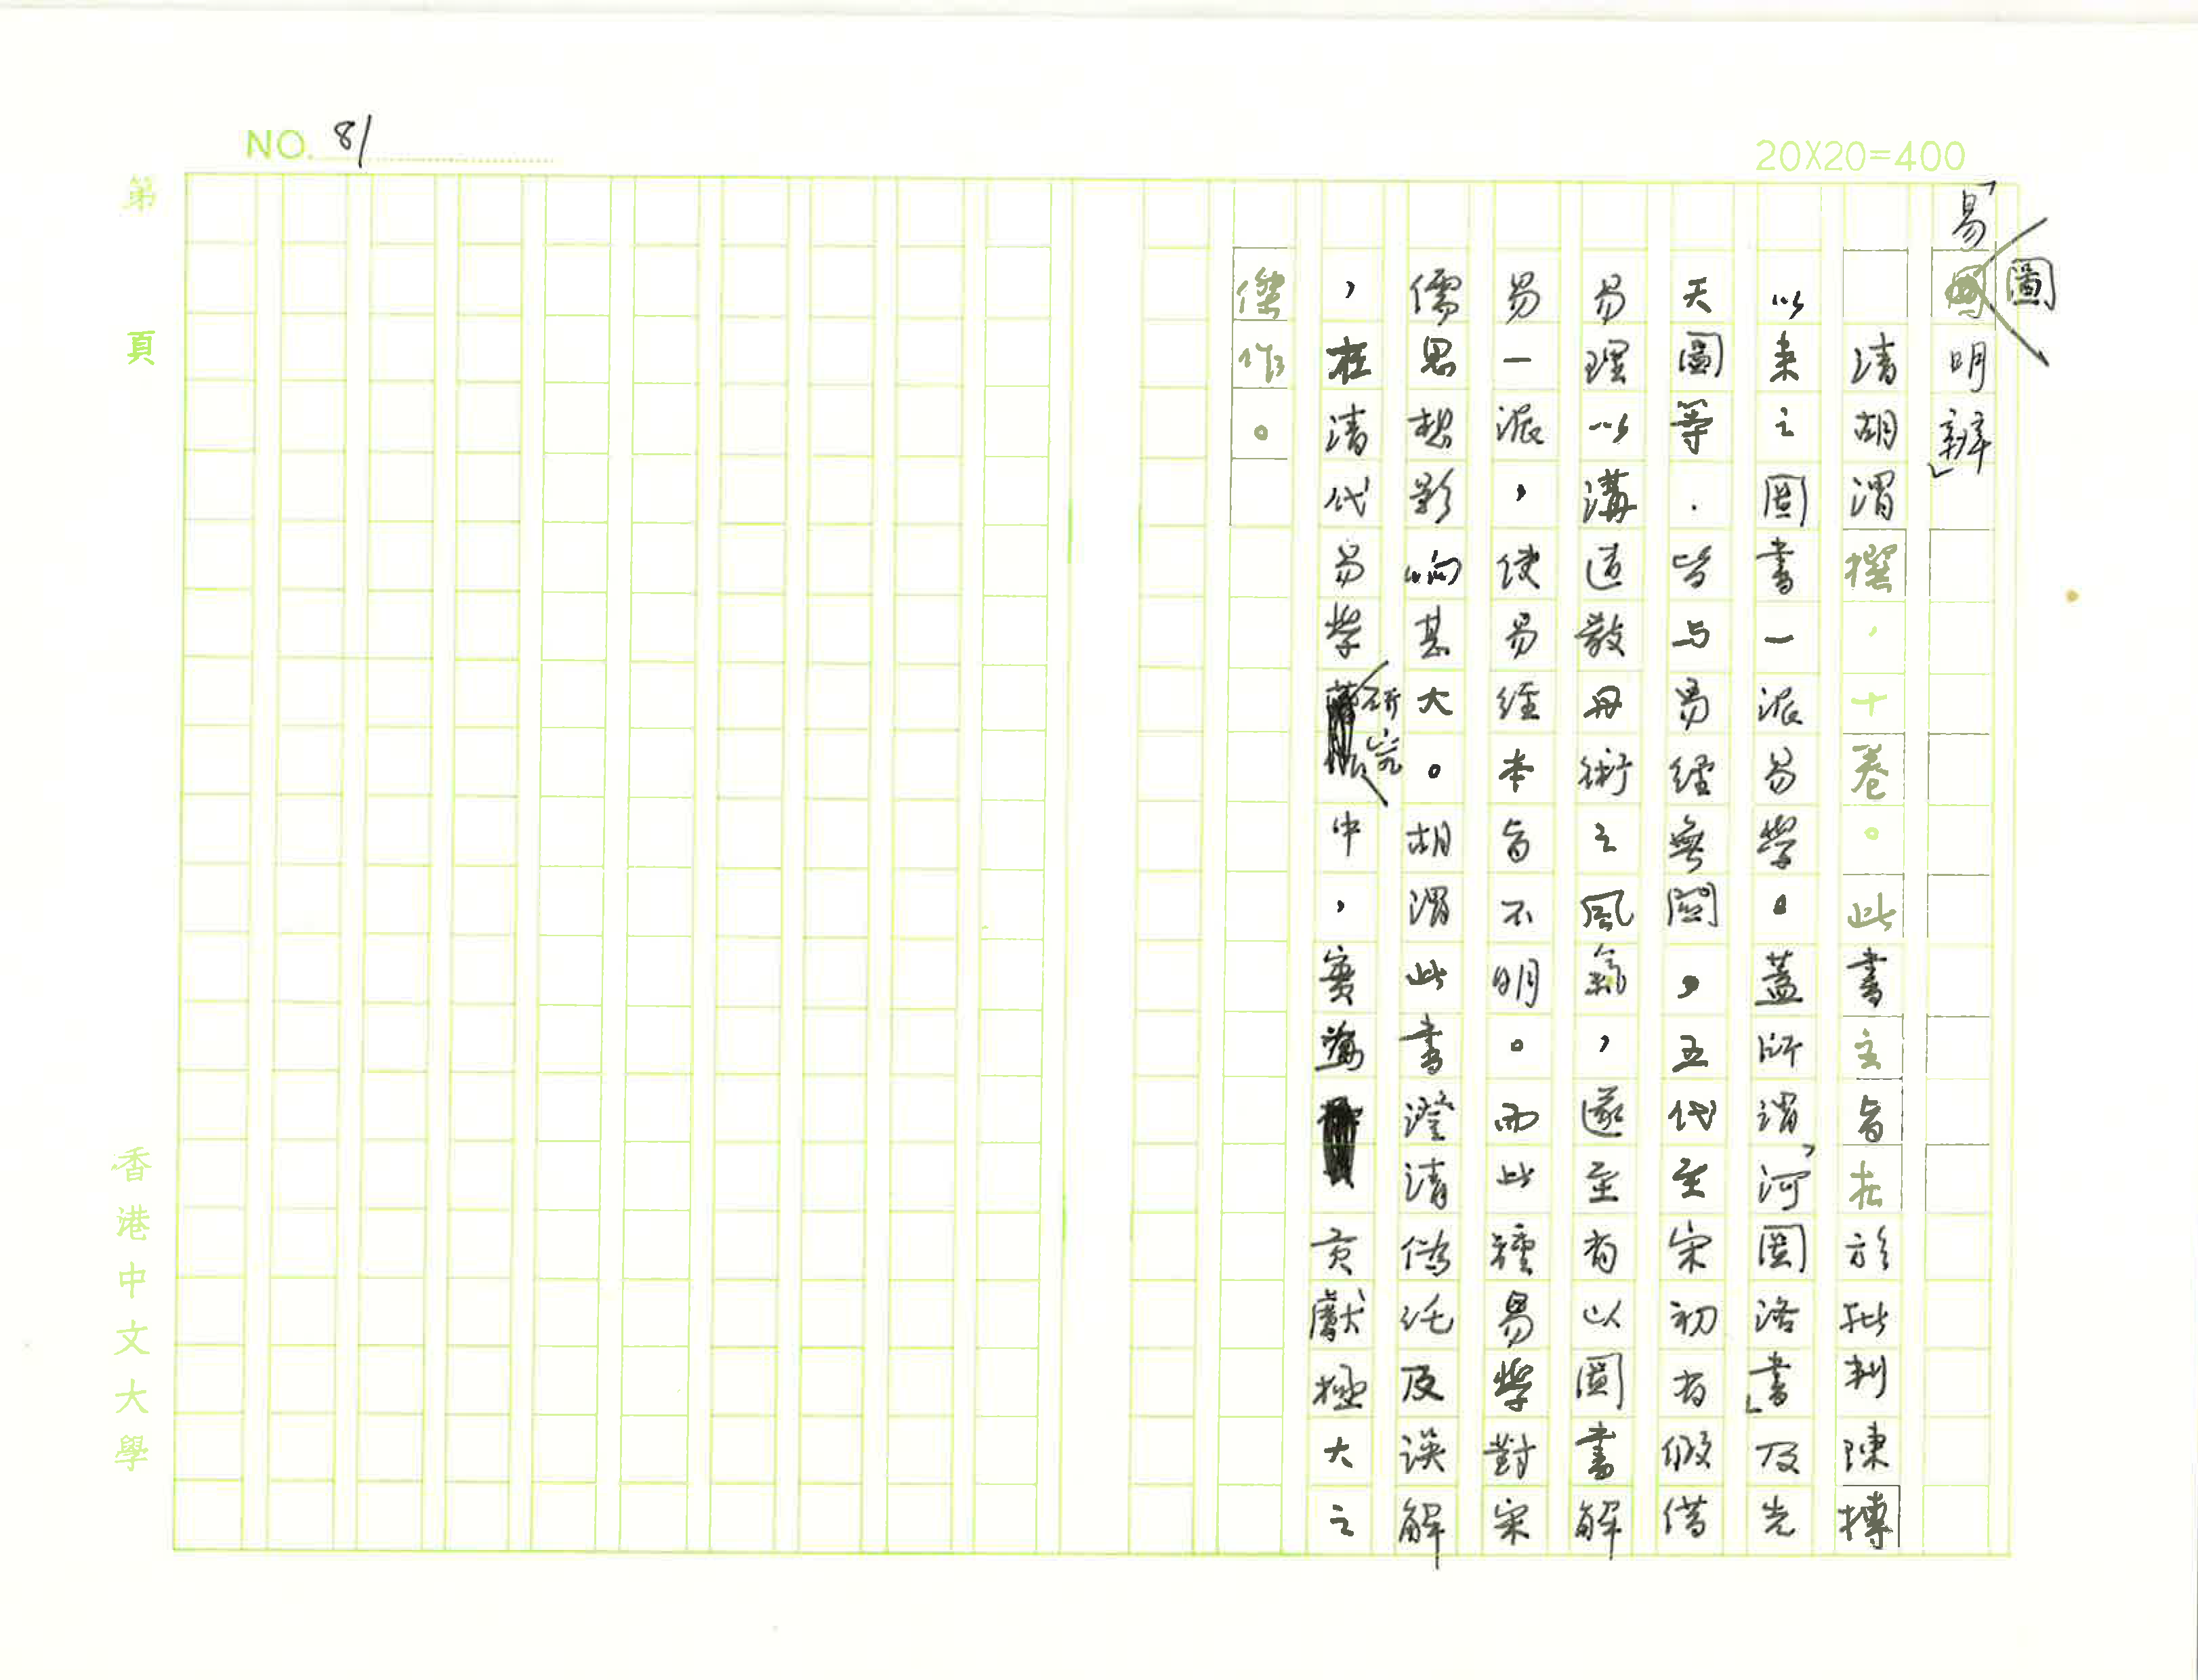 NO. 81
20X20=400
「易圖明辨」
清胡渭撰，十卷。此書主旨在於批判陳摶
以來之圖書一派易學。蓋所謂「河圖洛書」及先
天圖等．皆与易經無關，五代至宋初有假借
易理以溝道教丹術之風氣，遂至有以圖書解
易一派，使易經本旨不明。而此種易學對宋
儒思想影响甚大。胡渭此書澄清偽託及誤解
，在清代易學研究中，實為貢獻極大之
傑作。
第 頁
香港中文大學